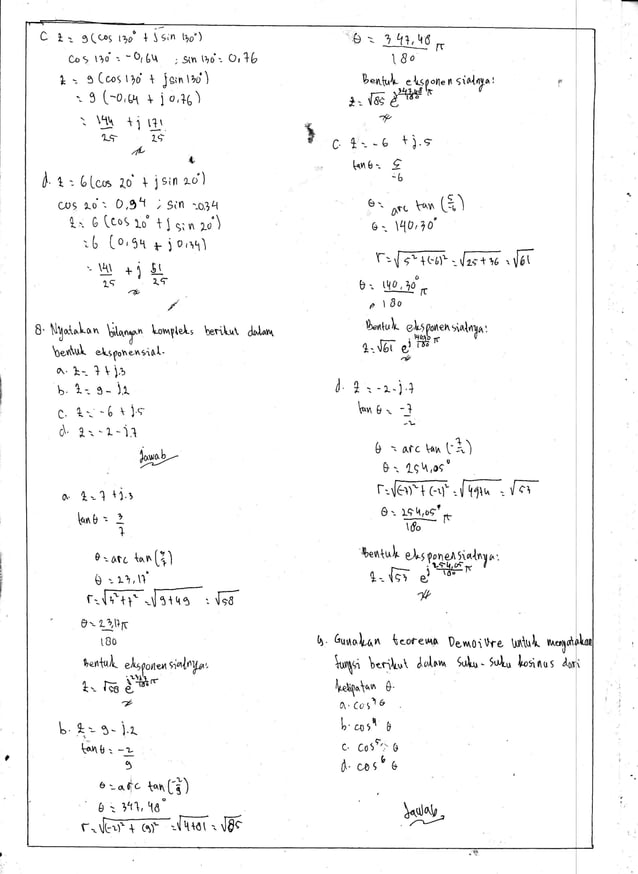 c z = 9 (cos 130° + j sin 130°)
cos 130° = -0,64 ; sin 130° = 0,76
z = 9 (cos 130 + j sin 130)
= 9 (-0,64 + j 0,76)
= 144/25 + j 171/25
d. z = 6 (cos 20° + j sin 20°)
cos 20° = 0,94 ; sin = 034
z = 6 (cos 20° + j sin 20°)
= 6 (0,94 + j 0,34)
= 141/25 + j 51/25
8. Nyatakan bilangan kompleks berikut dalam
bentuk eksponensial.
a. z = 7 + j.3
b. z = 9 - j.2
c. z = -6 + j.5
d. z = -2 - j.7
Jawab
a. z = 7 + j.3
tan θ = 3/7
θ = arc tan (3/7)
θ = 23,17°
r = √3² + 7² = √9 + 49 = √58
θ = 23,17π
180
Bentuk eksponensialnya:
z = √58 e^j 23,17/180 π
b. z = 9 - j.2
tan θ = -2/9
θ = arc tan (-2/9)
θ = 347,48°
r = √(-2)² + (9)² = √4+81 = √85
θ = 347,48/180 π
Bentuk eksponensialnya:
z = √85 e^j 347,48/180 π
c. z = -6 + j.5
tan θ = 5/-6
θ = arc tan (5/-6)
θ = 140,30°
r = √5² + (-6)² = √25 + 36 = √61
θ = 140,30/180 π
Bentuk eksponensialnya:
z = √61 e^j 140,30/180 π
d. z = -2 - j.7
tan θ = -7/-2
θ = arc tan (-7/-2)
θ = 254,05°
r = √(-7)² + (-2)² = √49+4 = √53
θ = 254,05°/180 π
Bentuk eksponensialnya:
z = √53 e^j 254,05/180 π
9. Gunakan teorema Demoivre untuk menyatakan
fungsi berikut dalam suku-suku kosinus dari
kelipatan θ.
a. cos³ θ
b. cos⁴ θ
c. cos⁵ θ
d. cos⁶ θ
Jawab